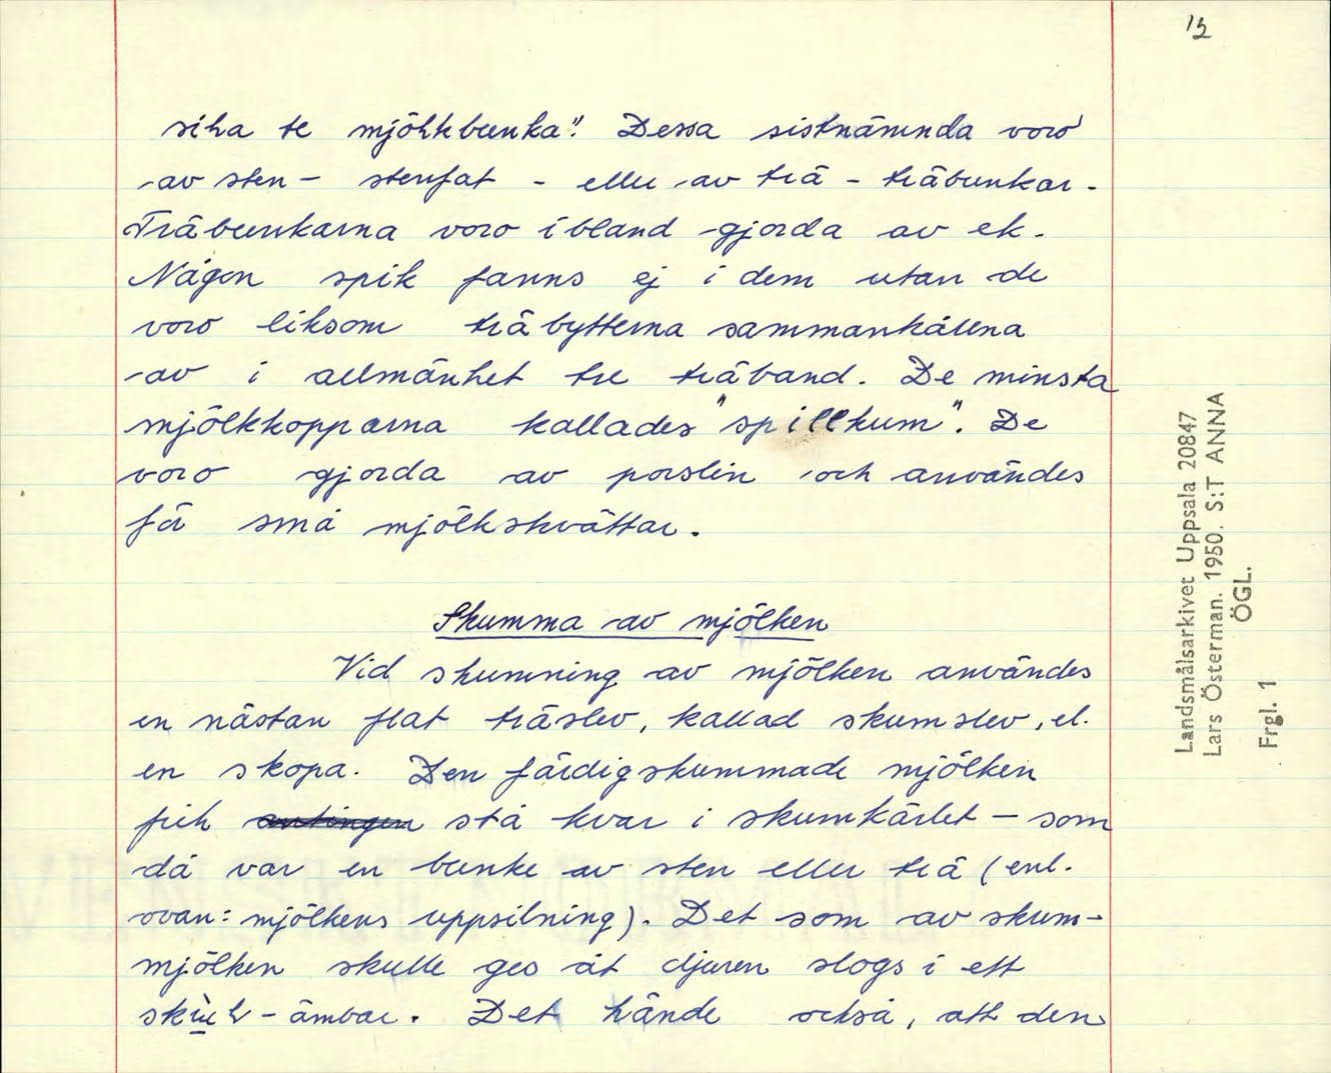 12
siha te mjöhkbunka". Dessa sistnämnda voro
av sten - stenfat - eller av trä - träbunkar.
Träbunkarna voro ibland gjorda av ek.
Någon spik fanns ej i dem utan de
voro liksom träbytterna sammanhållna
av i allmänhet tre träband. De minsta
mjölkkopparna kallades "spillkum". De
voro gjorda av porslin och användes
få små mjölkskvättar.
Skumma av mjölken
Vid skumning av mjölken användes
en nästan flat träslev, kallad skumslev, el.
en skopa. Den färdigskummade mjölken
fick antingen stå kvar i skumkärlet - som
då var en bunke av sten eller trä (enl.
ovan: mjölkens uppsilning). Det som av skum-
mjölken skulle ges åt djuren slogs i ett
-ämbar. Det hände också, att den
Landsmålsarkivet Uppsala 20847
Lars Österman. 1950. S:T ANNA
ÖGL.
Frgl. 1